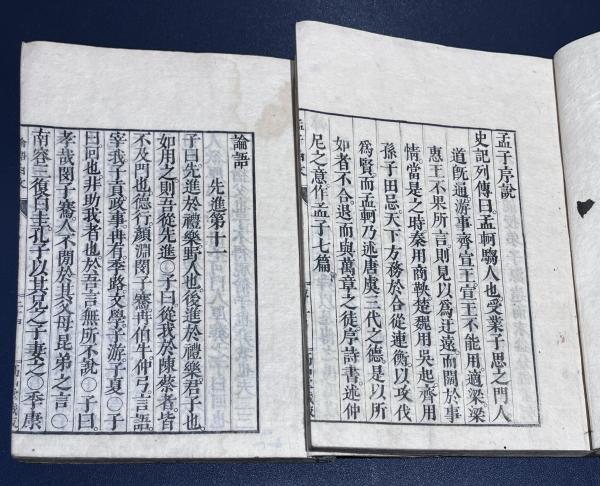 孟子序說
史記列傳曰。孟軻騶人也。受業子思之門人。
道既通。游事齊宣王。宣王不能用。適梁。梁
惠王不果所言。則見以爲迂遠而闊於事
情。當是之時。秦用商鞅。楚魏用吳起。齊用
孫子田忌。天下方務於合從連衡。以攻伐
爲賢。而孟軻乃述唐虞三代之德。是以所
如者不合。退而與萬章之徒。序詩書。述仲
尼之意。作孟子七篇。
論語
先進第十一
子曰。先進於禮樂。野人也。後進於禮樂。君子也。
如用之則吾從先進。○子曰。從我於陳蔡者。皆
不及門也。德行顏淵閔子騫冉伯牛仲弓。言語
宰我子貢。政事冉有季路。文學子游子夏。○子
曰。回也非助我者也。於吾言無所不說。○子曰。
孝哉閔子騫。人不閒於其父母昆弟之言。○
南容三復白圭。孔子以其兄之子妻之。○季康